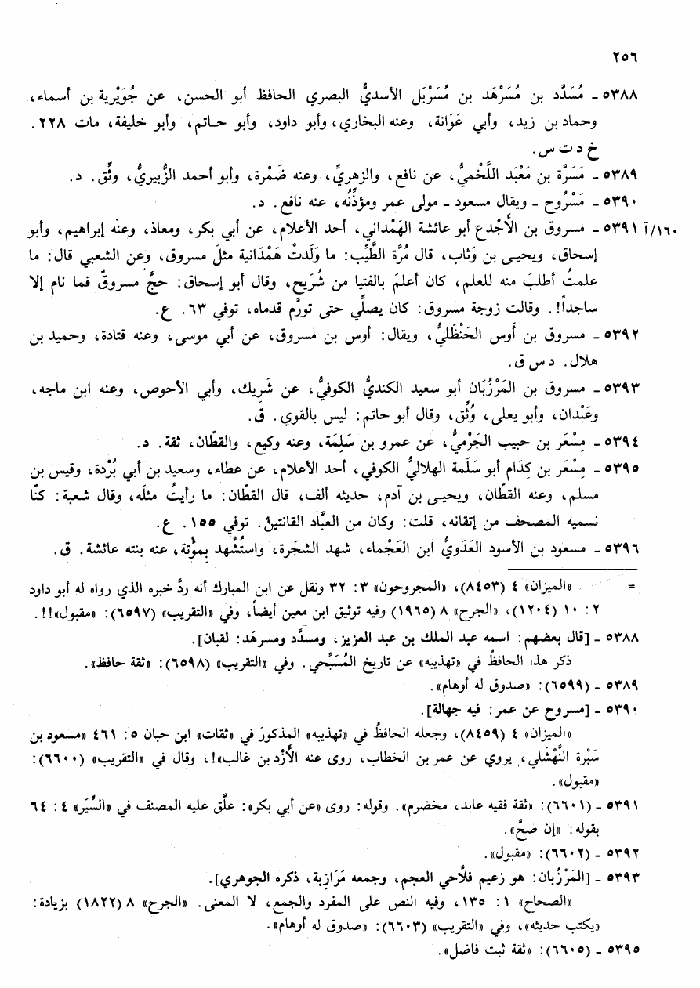 ٢٥٦
٥٣٨٨ ـ مُسَدَّد بن مُسَرْهَد بن مُسَرْبَل الأسديُّ البصري الحافظ أبو الحسن، عن جُوَيْرية بن أسماء،
وحماد بن زيد، وأبي عَوَانة، وعنه البخاري، وأبو داود، وأبو حاتم، وأبو خليفة، مات ٢٢٨.
خ د ت س.
٥٣٨٩ ـ مَسَرَّة بن مَعْبَد اللَّخْميُّ، عن نافع، والزهريِّ، وعنه ضَمْرة، وأبو أحمد الزُّبيريُّ، وثِّق. د.
٥٣٩٠ ـ مَسْرُوح ـ ويقال مسعود ـ مولى عمر ومؤذِّنُه، عنه نافع. د.
١٦٠/آ ٥٣٩١ ـ مسروق بن الأجْدع أبو عائشة الهَمْداني، أحد الأعلام، عن أبي بكر، ومعاذ، وعنه إبراهيم، وأبو
إسحاق، ويحيى بن وَثَاب، قال مُرَّة الطَّيِّب: ما وَلَدتْ هَمْدانية مثلَ مسروق، وعن الشعبي قال: ما
علمتُ أطلبَ منه للعلم، كان أعلمَ بالفتيا من شُرَيح، وقال أبو إسحاق: حجَّ مسروقٌ فما نام إلا
ساجداً!. وقالت زوجة مسروق: كان يصلِّي حتى تورَّم قدماه، توفي ٦٣. ع.
٥٣٩٢ ـ مسروق بن أوس الحَنْظليُّ، ويقال: أوس بن مسروق، عن أبي موسى، وعنه قتادة، وحميد بن
هلال. د س ق.
٥٣٩٣ ـ مسروق بن المَرْزُبَان أبو سعيد الكنديُّ الكوفيُّ، عن شَريك، وأبي الأحوص، وعنه ابن ماجه،
وعَبْدان، وأبو يعلى، وُثِّق، وقال أبو حاتم: ليس بالقوي. ق.
٥٣٩٤ ـ مِسْعَر بن حبيب الجَرْميُّ، عن عمرو بن سَلِمَة، وعنه وكيع، والقطَّان، ثقة. د.
٥٣٩٥ ـ مِسْعَر بن كِدَام أبو سَلَمة الهلاليُّ الكوفي، أحد الأعلام، عن عطاء، وسعيد بن أبي بُرْدة، وقيس بن
مسلم، وعنه القطَّان، ويحيى بن آدم، حديثه ألف، قال القطَّان: ما رأيتُ مثلَه، وقال شعبة: كنَّا
نسميه المصحف من إتقانه، قلت: وكان من العبَّاد القانتينْ. توفي ١٥٥. ع.
٥٣٩٦ ـ مسعود بن الأسود العَدَويُّ ابن العَجْماء، شهد الشجَرة، واستُشْهد بمؤْتة، عنه بنته عائشة. ق.
= «الميزان» ٤ (٨٤٥٣)، «المجروحون» ٣: ٣٢ ونقل عن ابن المبارك أنه ردَّ خبره الذي رواه له أبو داود
٢: ١٠ (١٢٠٤)، «الجرح» ٨ (١٩٦٥) وفيه توثيق ابن معين أيضاً، وفي «التقريب» (٦٥٩٧): «مقبول»!!.
٥٣٨٨ ـ [قال بعضهم: اسمه عبد الملك بن عبد العزيز، ومسدَّد ومسرهَد: لقبان].
ذكر هذا الحافظُ في «تهذيبه» عن تاريخ المُسَبِّحي. وفي «التقريب» (٦٥٩٨): «ثقة حافظ».
٥٣٨٩ ـ (٦٥٩٩): «صدوق له أوهام».
٥٣٩٠ ـ [مسروح عن عمر: فيه جهالة].
«الميزان» ٤ (٨٤٥٩)، وجعله الحافظُ في «تهذيبه» المذكورَ في «ثقات» ابن حبان ٥: ٤٦١ «مسعود بن
سَبْرة النَّهْشلي، يروي عن عمر بن الخطاب، روى عنه الأَزْد بن غالب»!، وقال في «التقريب» (٦٦٠٠):
«مقبول».
٥٣٩١ ـ (٦٦٠١): «ثقة فقيه عابد، مخضرم». وقوله: روى «عن أبي بكر»: علَّق عليه المصنف في «السِّيَر» ٤: ٦٤
بقوله: «إن صحَّ».
٥٣٩٢ ـ (٦٦٠٢): «مقبول».
٥٣٩٣ ـ [المَرْزُبان: هو زعيم فلَّاحي العجم، وجمعه مَرَازِبة، ذكره الجوهري].
«الصحاح» ١: ١٣٥، وفيه النص على المفرد والجمع، لا المعنى. «الجرح» ٨ (١٨٢٢) بزيادة:
«يكتب حديثه»، وفي «التقريب» (٦٦٠٣): «صدوق له أوهام».
٥٣٩٥ ـ (٦٦٠٥): «ثقة ثبت فاضل».